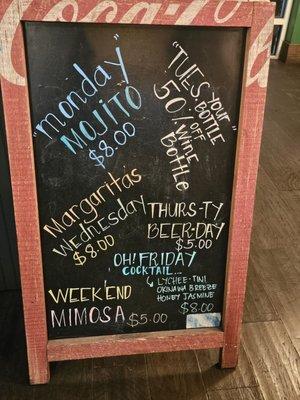 Coca-Cola
"monday"
MOJITO
$8.00
"TUES YOUR
BOTTLE"
50% OFF
WINE
BOTTLE
Margaritas
Wednesday
$8.00
THURS-TY
BEER-DAY
$5.00
OH! FRIDAY
COCKTAIL...
LYCHEE-TINI
OKINAWA BREEZE
HONEY JASMINE
$8.00
WEEK'END
MIMOSA $5.00